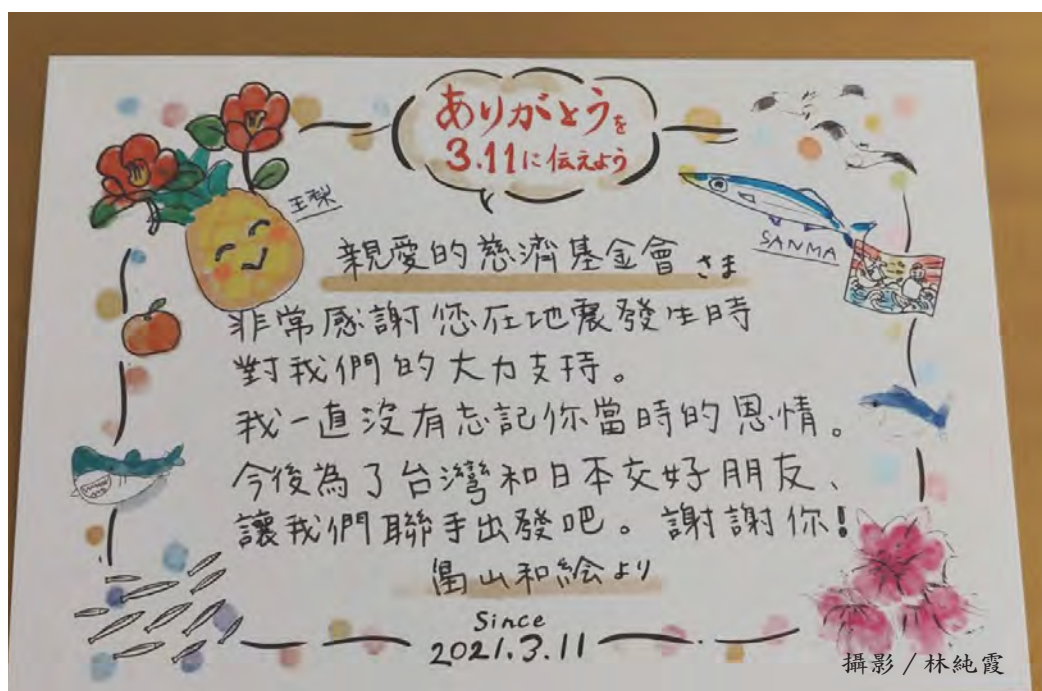 ありがとうを
3.11に伝えよう
王梨
SANMA
親愛的慈濟基金會さま
非常感謝您在地震發生時
對我們的大力支持。
我一直沒有忘記你當時的恩情。
今後為了台灣和日本交好朋友、
讓我們聯手出發吧。謝謝你!
山和絵より
Since
2021.3.11
攝影/林純霞